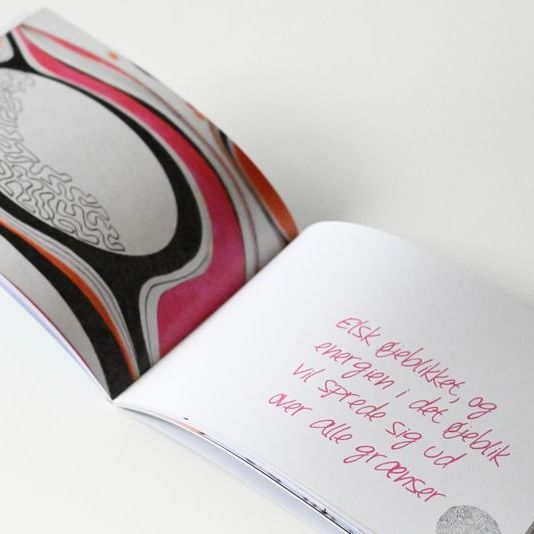 Elsk øjeblikket, og
energien i det øjeblik
vil sprede sig ud
over alle grænser